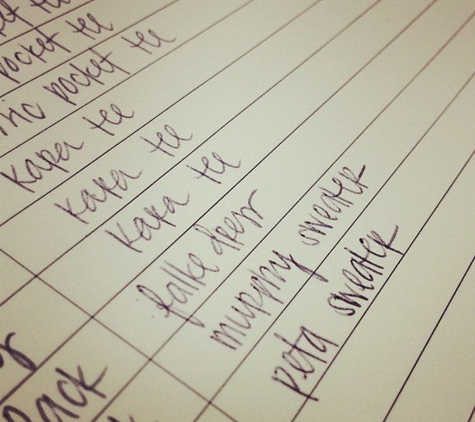 pocket tee
pocket tee
kapa tee
kapa tee
kapa tee
falke dress
murphy sweater
peta sweater